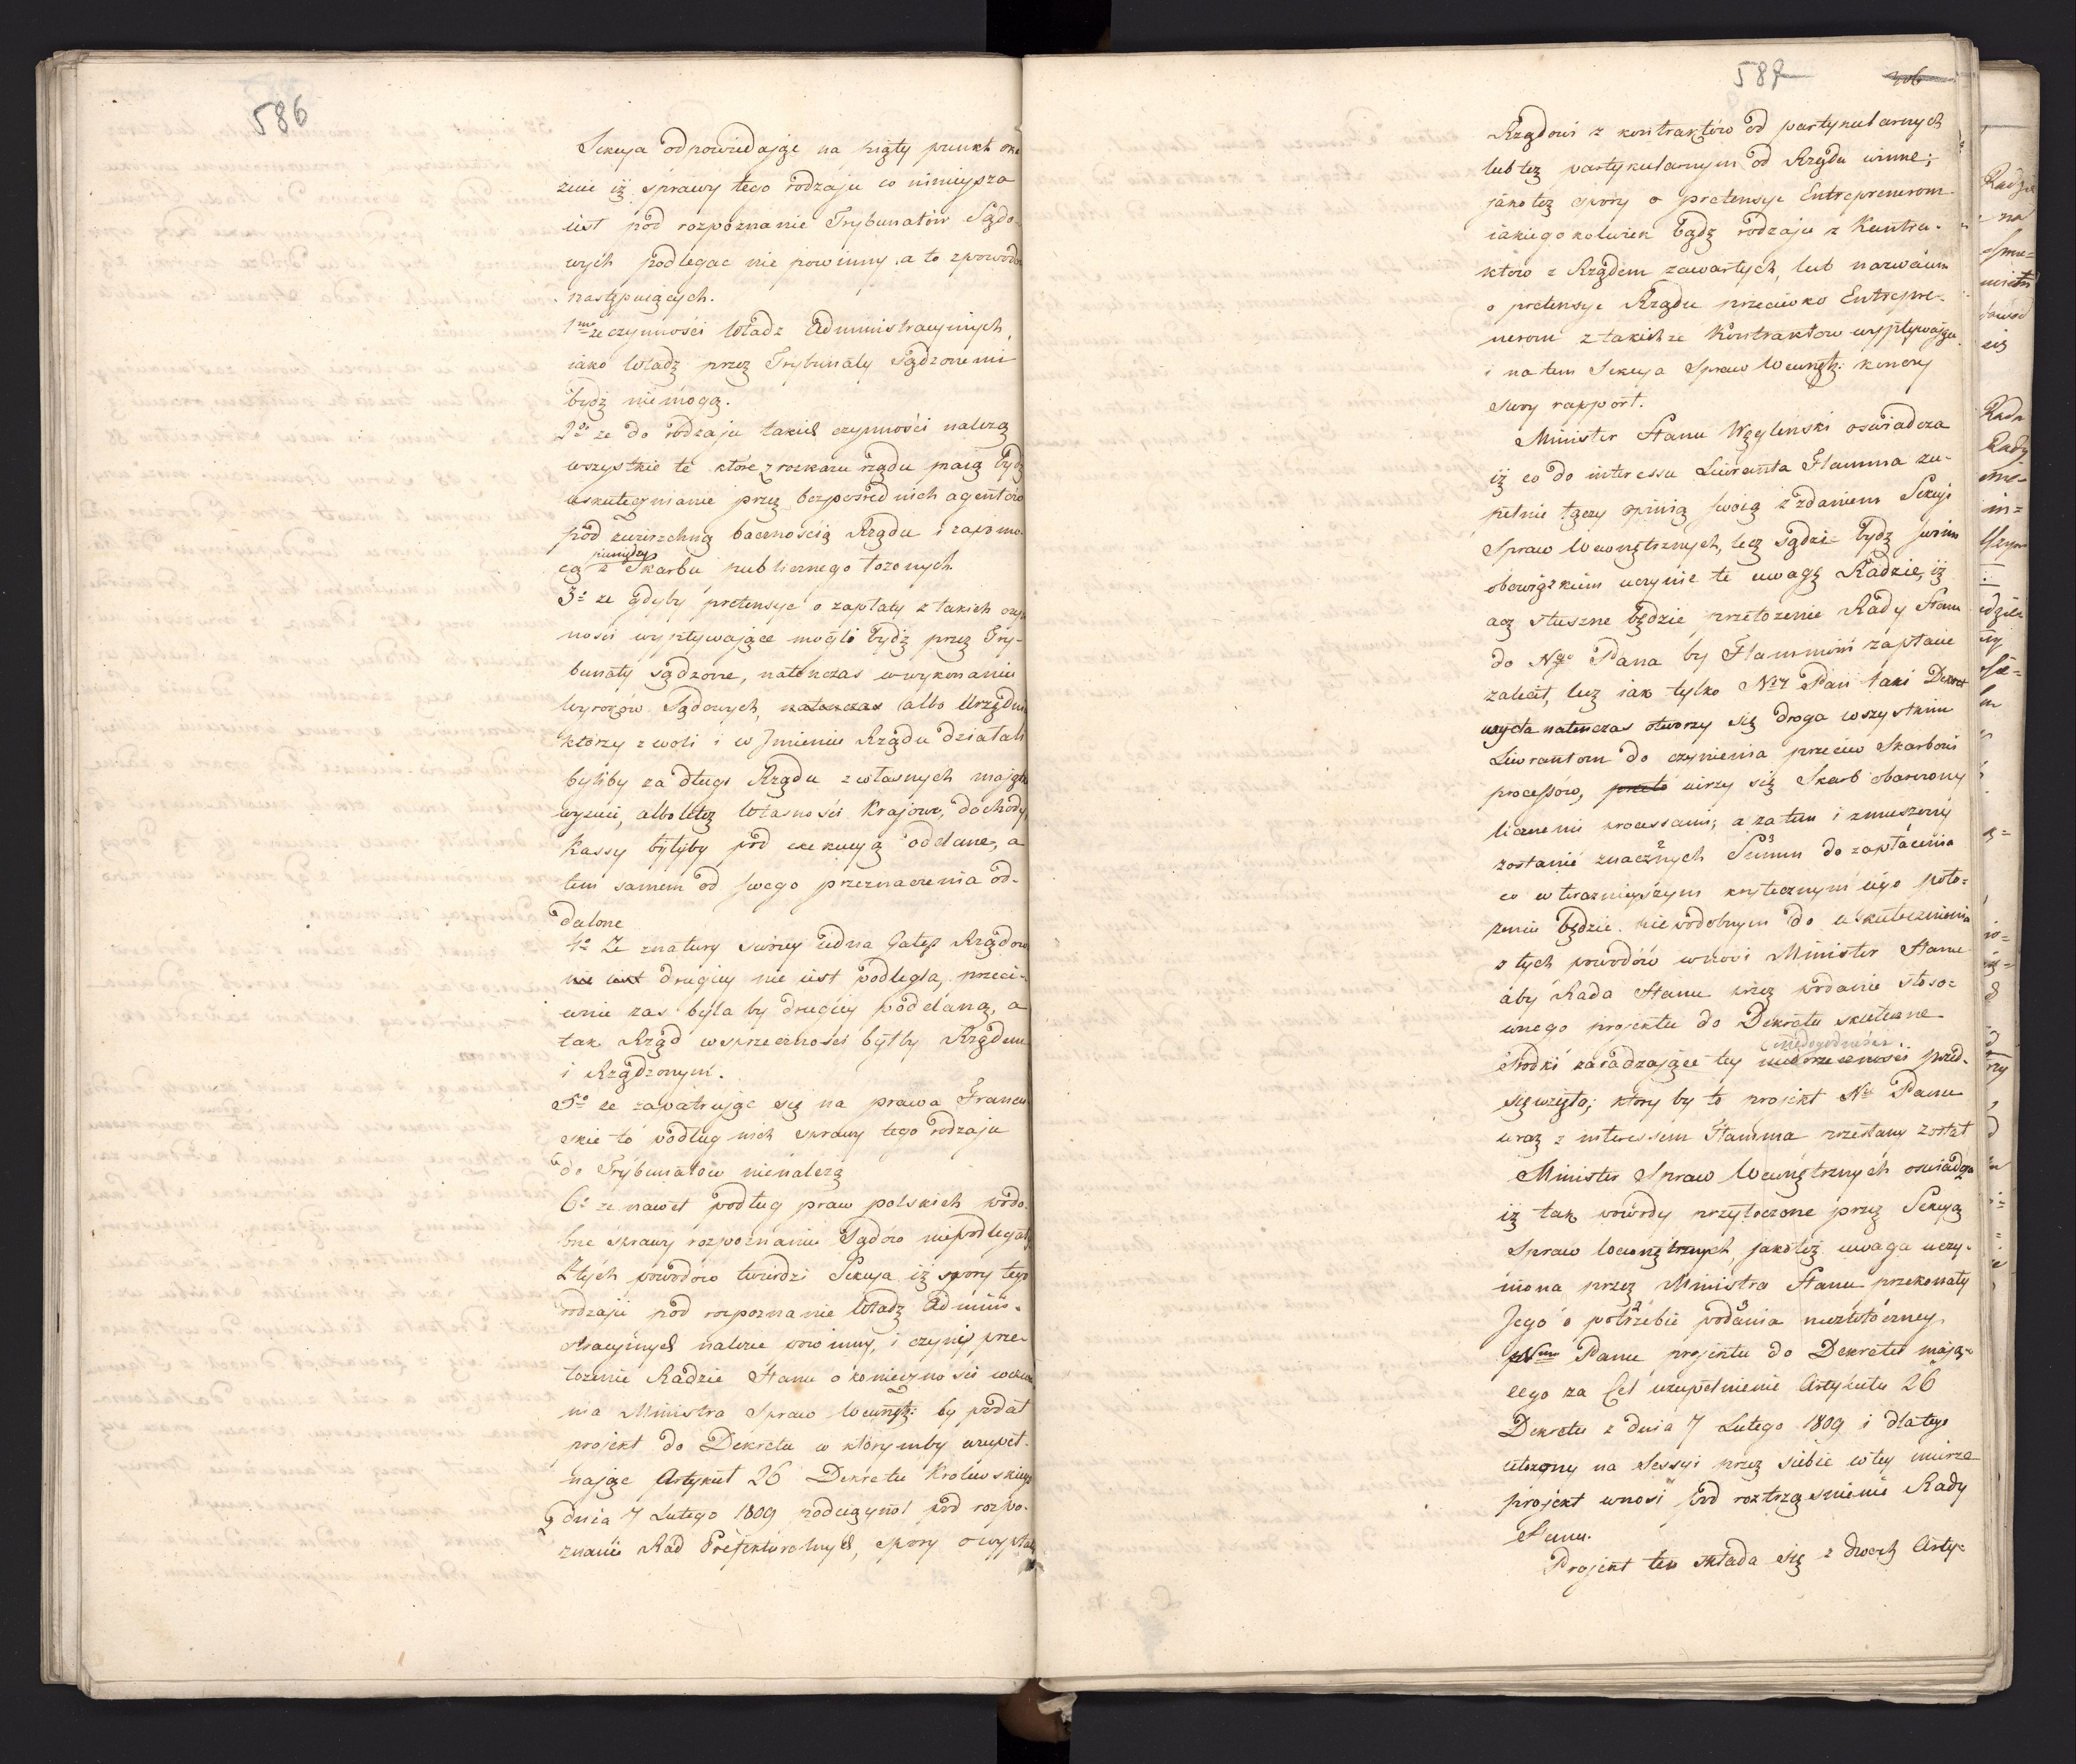 586
Sekcya odpowiedając na piąty punkt orze
znie iż sprawy tego rodzaju co ninieysza
iest pod rozpoznanie Trybunałów Sądo-
wych podlegac nie powinny, a to zpowodów
następuiących.
1mo że czynności Władz Administracyinych,
iako Władz przez Trybunały sądzonemi
bydz niemogą.
2do ze do rodzaju takich czynności należą
wszystkie te które z rozkazu rządu maią bydz
uskutecznianie przez bezpośrednich agentów
pod zwierzchnią bacznością Rządu i zapomo-
pieniędzy
cą z Skarbu publicznego łozonych.
3o ze gdyby pretensye o zapłaty z takich czyn
ności wypływające mogli bydz przez Try-
bunały sądzone, natenczas w wykonaniu
Wyroków Sądowych, natenczas albo Urzędni
ktorzy z woli i w Jmieniu Rządu działali
byliby za długi Rządu z własnych majątk
wyzuci, albo też Własności Krajowe, dochody,
Kassy byłyby pod exekucyą oddane, a
tem samem od swego przeznaczenia od-
dalone
4o Ze znatury swoiey iedna Gałęz Rządowa
nie iest drugiey nie iest podległa, przeci-
wnie zas była by drugiey poddaną, a
tak Rząd w sprzeczności byłby Rządem
i Rządzonym.
5o ze zapatruiąc się na prawa Francu
skie to podług nich sprawy tego rodzaju
do Trybunałów nienależą
6o ze nawet podług praw polskich podo-
bne sprawy rozpoznaniu Sądów niepodlegały
Ztych powodów twierdzi Sekcya iż spory tego
rodzaju pod rozpoznanie Władz Admini-
stracyinych nalezec powinny, i czyni prze-
łożenie Radzie Stanu o konieczności wezwa
nia Ministra Spraw Wewnętz: by podał
projekt do Dekretu w którymby uzupeł-
niając Artykuł 26 Dekretu Krolewskiego
z dnia 7 Lutego 1809 podciągnoł pod rozpo-
znanie Rad Prefekturalnych, spory o wypłaty
587 306
Rządowi z kontraktów od partykularnych
lub też partykularnym od Rządu winne;
jako też spory o pretensye Entreprenerom
iakiegokolwiek bądz rodzaju z Kontra-
ktow z Rządem zawartych, lub nazwaiem
o pretensye Rządu przeciwko Entrepre-
nerom z takichże Kontraktow wypływające
i na tem Sekcya Spraw Wewnętz: konczy
swoy rapport.
Minister Stanu Węglenski oswiadcza
iż co do interessu Liweranta Flamma zu-
pełnie łączy opinią swoią z zdaniem Sekcyi
Spraw Wewnętrznych, lecz sądzi bydz swim
obowiązkiem uczynic tę uwagę Radzie, iż
acz słuszne będzie przełozenie Rady Stanu
do Ngo Pana by Flammowi zapłacic
zalecił, lecz iak tylko Nay Pan taki Dekret
wyda natenczas otworzy się droga wszystkim
Liwrantom do czynienia przeciw Skarbowi
processów, przeto uirzy się Skarb obarczony
licznemi processami; a zatem i zmuszony
zostanie znacznych Summ do zapłacenia
co w teraznieyszym krytycznym iego poło-
zeniu będzie niepodobnym do uskutecznienia
z tych powodów wnosi Minister Stanu
aby Rada Stanu przez podanie stoso-
wnego projektu do Dekretu skuteczne
niedogodności
srodki zaradzające tey niedorzeczności przed-
sięwzięła; który by to projekt Nu Panu
wraz z interessem Flamma przesłany został
Minister Spraw Wewnętrznych oswiadcza
iż tak powody przytoczone przez Sekcyą
Spraw Wewnętrznych, jakoteż uwaga uczy-
niona przez Ministra Stanu przekonały
Jego o potrzebie podania niezwłoczney
Nmu Panu projektu do Dekretu mają-
cego za Cel uzupełnienie Artykułu 26
Dekretu z dnia 7 Lutego 1809 i dlatego
ułozony na Sessyi przez siebie w tey mierze
projekt wnosi pod roztrząsnienie Rady
Stanu.
Projekt ten składa się z dwoch Arty-